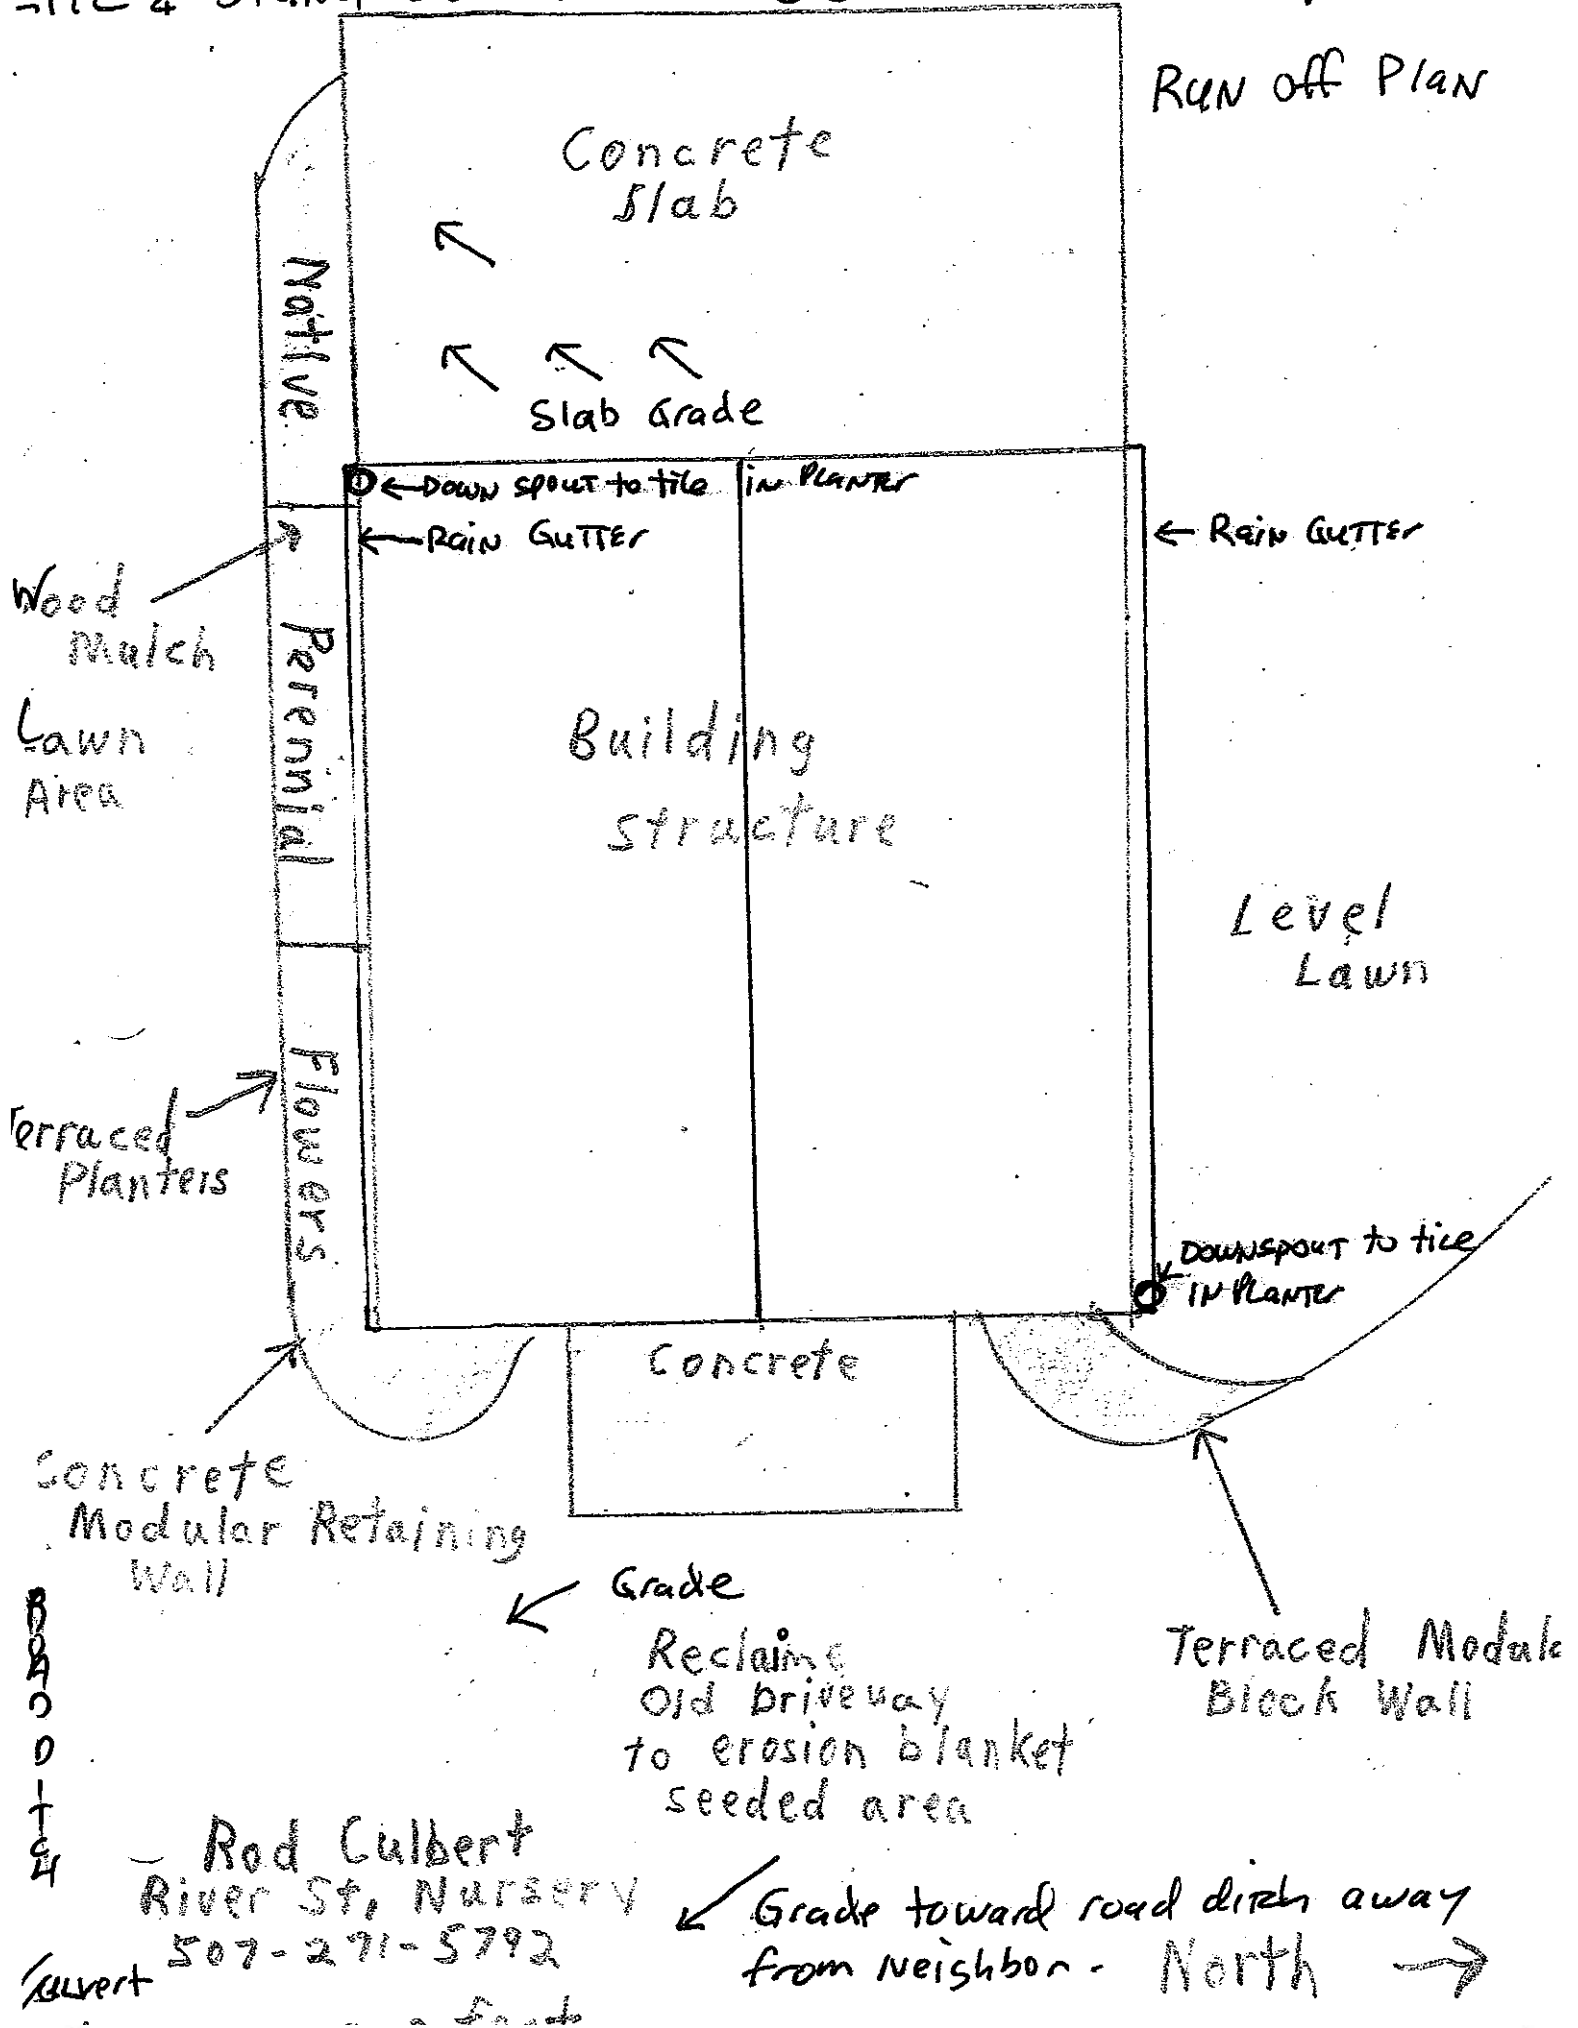 RUN off PlaN
Concrete
Slab
Slab Grade
Native
Perennial
Flowers
DOWN SPOUT to tile in PLANTER
RaiN GuTTEr
RaiN GuTTEr
Wood
Mulch
Lawn
Area
Building
structure
Level
Lawn
Terraced
Planters
DOWNSPOUT to tile
IN PLANTER
Concrete
Concrete
Modular Retaining
Wall
Grade
Reclaime
Old Driveway
to erosion blanket
seeded area
Terraced Module
Block Wall
ROAD DITCH
Rod Culbert
River St, Nursery
507-271-5792
Grade toward road ditch away
from Neighbor. North
Culvert
feet